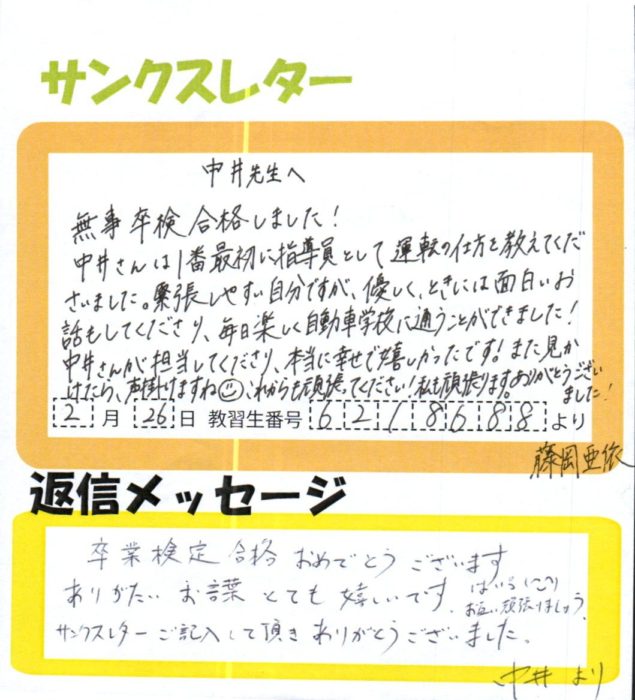 サンクスレター
中井先生へ
無事卒検合格しました！
中井さんは1番最初に指導員として運転の仕方を教えてくだ
さいました。緊張しやすい自分ですが、優しく、ときには面白いお
話もしてくださり、毎日楽しく自動車学校に通うことができました！
中井さんが担当してくださり、本当に幸せで嬉しかったです！また見か
けたら、声掛けますね☺これからも頑張ってください！私も頑張ります。ありがとうござい
ました！
2月26日 教習生番号 6218688より
藤岡亜依
返信メッセージ
卒業検定合格おめでとうございます
ありがたいお言葉とても嬉しいです。
お互い頑張りましょう。
サンクスレターご記入して頂きありがとうございました。
中井より